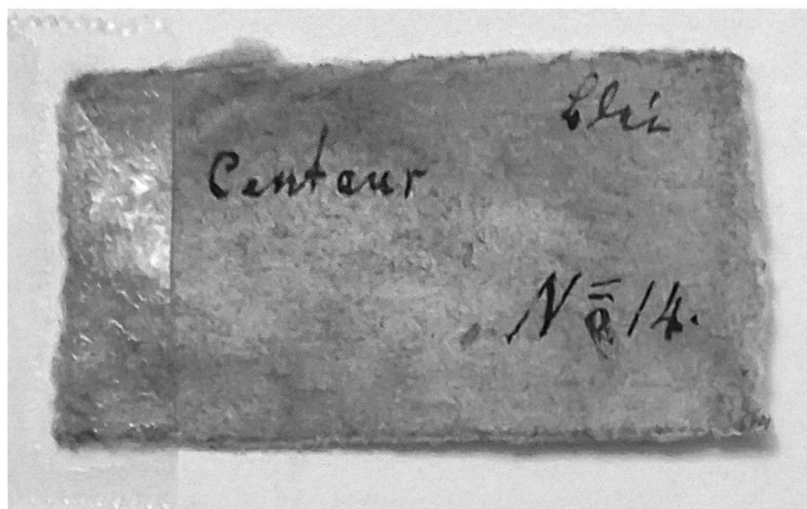 Blei
Centaur
Nº 14.